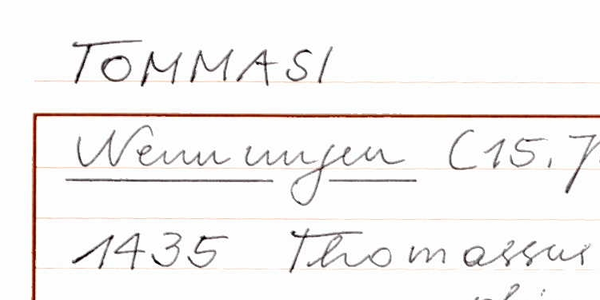 TOMMASI
Nennungen (15.7
1435 Thomassus